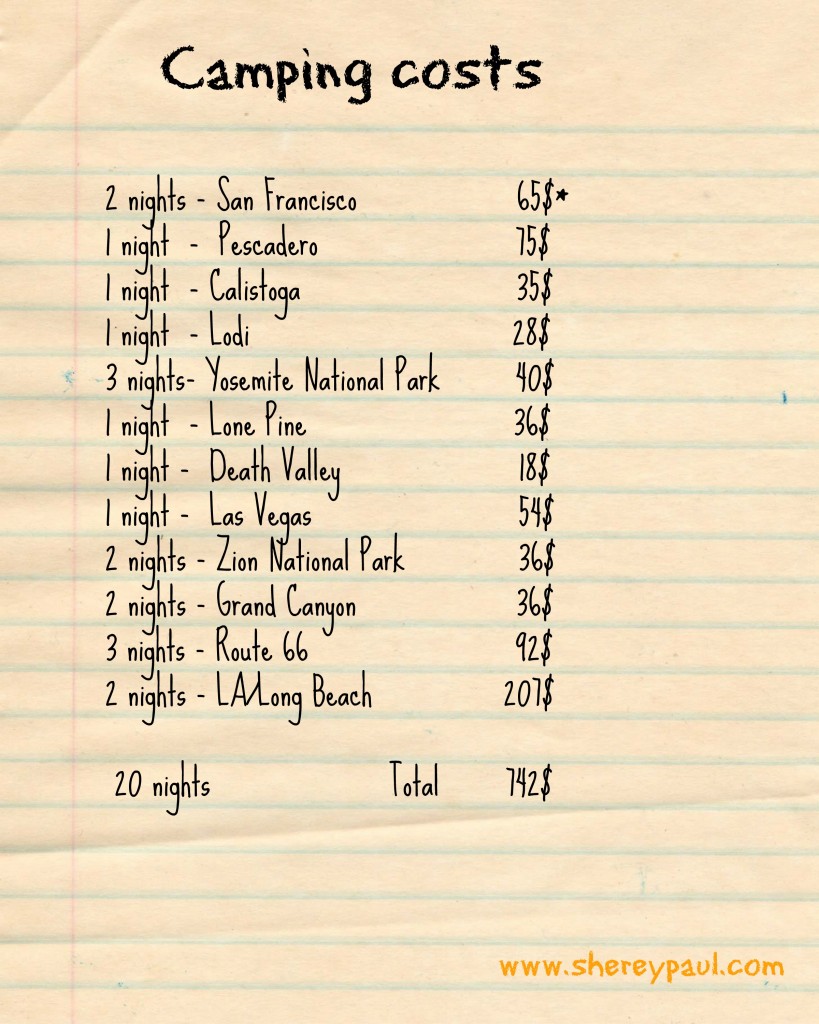 Camping costs
2 nights - San Francisco 65$*
1 night - Pescadero 75$
1 night - Calistoga 35$
1 night - Lodi 28$
3 nights- Yosemite National Park 40$
1 night - Lone Pine 36$
1 night - Death Valley 18$
1 night - Las Vegas 54$
2 nights - Zion National Park 36$
2 nights - Grand Canyon 36$
3 nights - Route 66 92$
2 nights - LA/Long Beach 207$
20 nights Total 742$
www.shereypaul.com